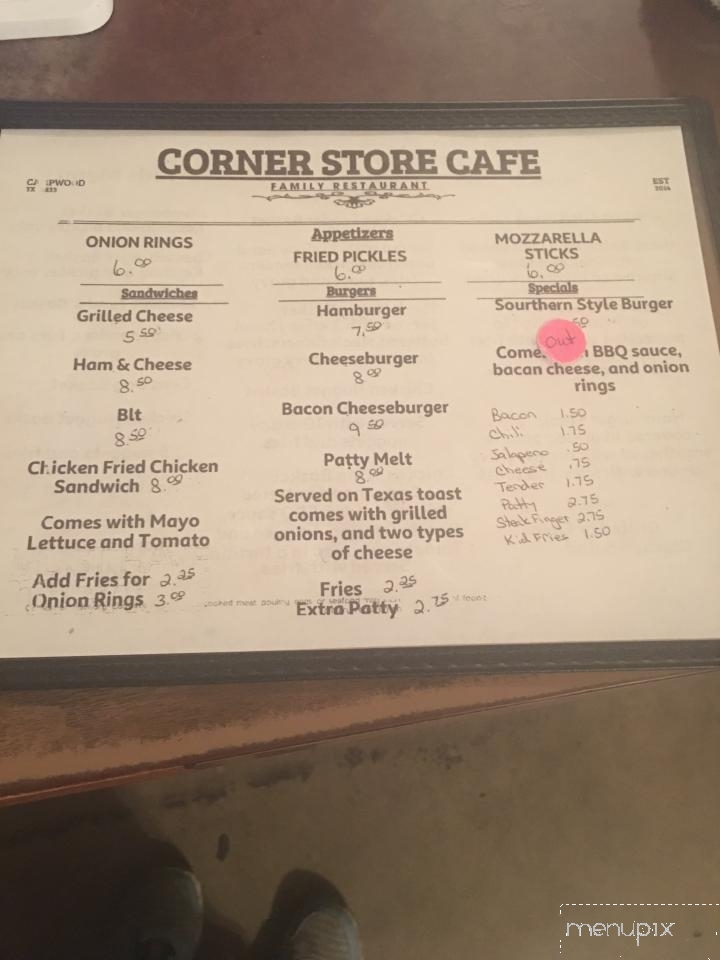 CORNER STORE CAFE
FAMILY RESTAURANT
TX
EST
2014
Appetizers
ONION RINGS
6.00
FRIED PICKLES
6.00
MOZZARELLA
STICKS
6.00
Sandwiches
Grilled Cheese
5.50
Ham & Cheese
8.50
Blt
8.50
Chicken Fried Chicken
Sandwich 8.00
Comes with Mayo
Lettuce and Tomato
Add Fries for 2.25
Onion Rings 3.00
Burgers
Hamburger
7.50
Cheeseburger
8.00
Bacon Cheeseburger
9.50
Patty Melt
8.00
Served on Texas toast
comes with grilled
onions, and two types
of cheese
Fries 2.25
Extra Patty 2.75
Specials
Sourthern Style Burger
50
Out
Come BBQ sauce,
bacan cheese, and onion
rings
Bacon 1.50
Chili 1.75
Jalapeno .50
Cheese .75
Tender 1.75
Patty 2.75
Steak Finger 2.75
Kid Fries 1.50
menupix